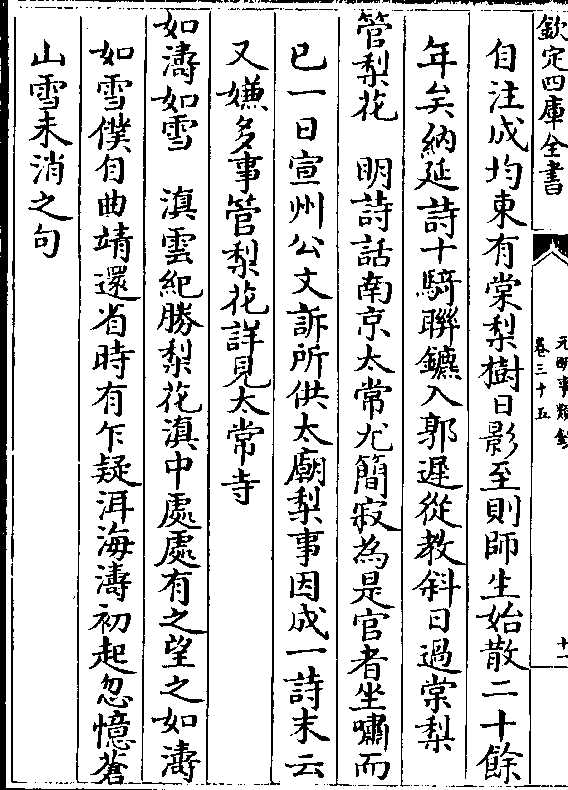 欽定四庫全書
元明事類鈔
卷三十五
十一
自注成均東有棠梨樹日影至則師生始散二十餘
年矣納延詩十騎聯鑣入郭遲從教斜日過棠梨
管梨花　明詩話南京太常尤簡寂為是官者坐嘯而
已一日宣州公文訴所供太廟梨事因成一詩末云
又嫌多事管梨花詳見太常寺
如濤如雪　滇雲紀勝梨花滇中處處有之望之如濤
如雪僕自曲靖還省時有乍疑洱海濤初起忽憶蒼
山雪未消之句